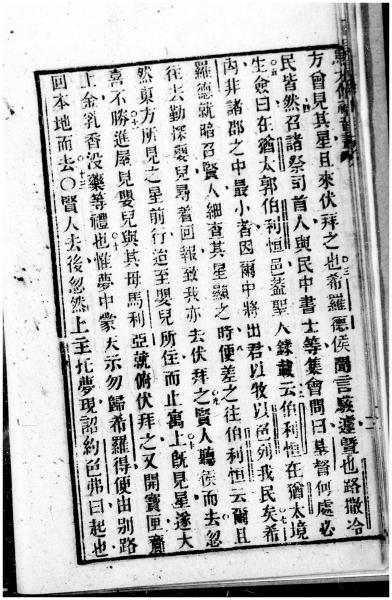 方曾見其星且來伏拜之也希羅德侯聞言駭遽暨也路撒冷
民皆然召諸祭司首人與民中書士等集會問曰基督何處必
生僉曰在猶太郭伯利恒邑葢聖人錄載云伯利恒在猶太境
內非諸郡之中最小者因爾中將出君以牧以色列我民矣希
羅德就暗召賢人細查其星顯之時便差之往伯利恒云爾且
往去勤探嬰兒尋著回報致我亦去伏拜之賢人聽侯而去忽
然東方所見之星前行迨至嬰兒所住而止寓上旣見星遂大
喜不勝進屋見嬰兒與其母馬利亞就俯伏拜之又開寶匣齎
上金乳香沒藥等禮也惟夢中蒙天示勿歸希羅得便由别路
囘本地而去○賢人去後忽然上主托夢現詔約色弗曰起也